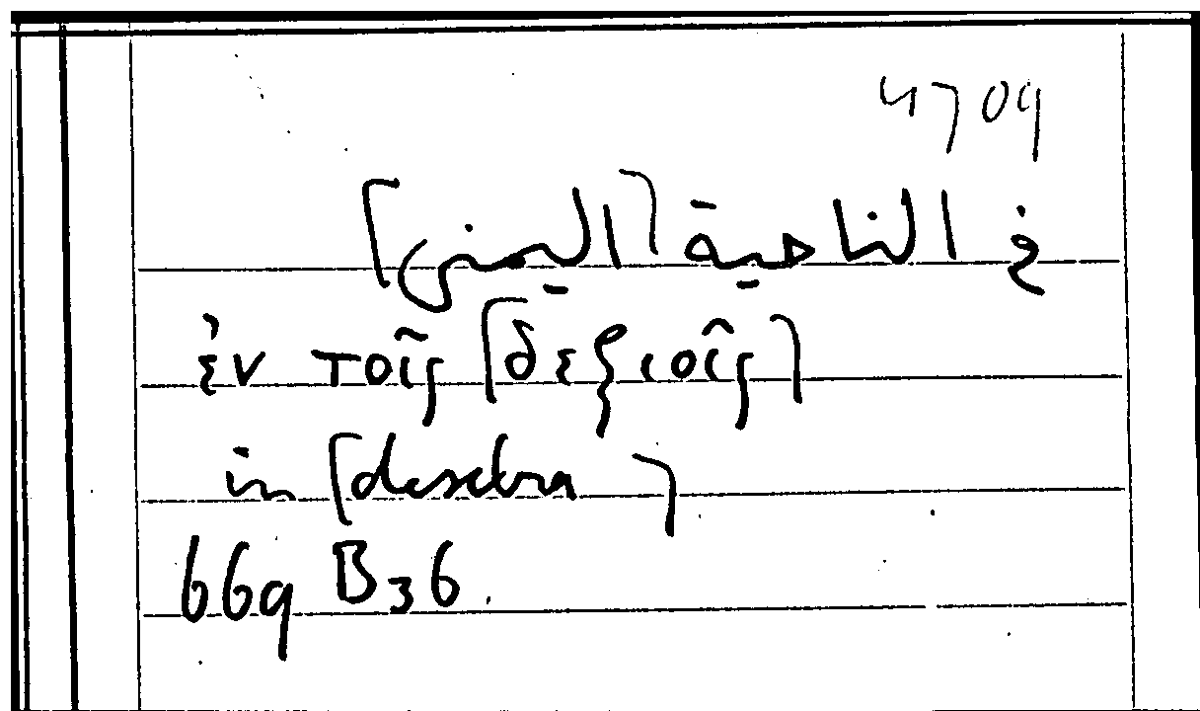 4709
في الناحية ⌈اليمنى⌉
ἐν τοῖς ⌈δεξιοῖς⌉
in ⌈dextra⌉
669 B36.